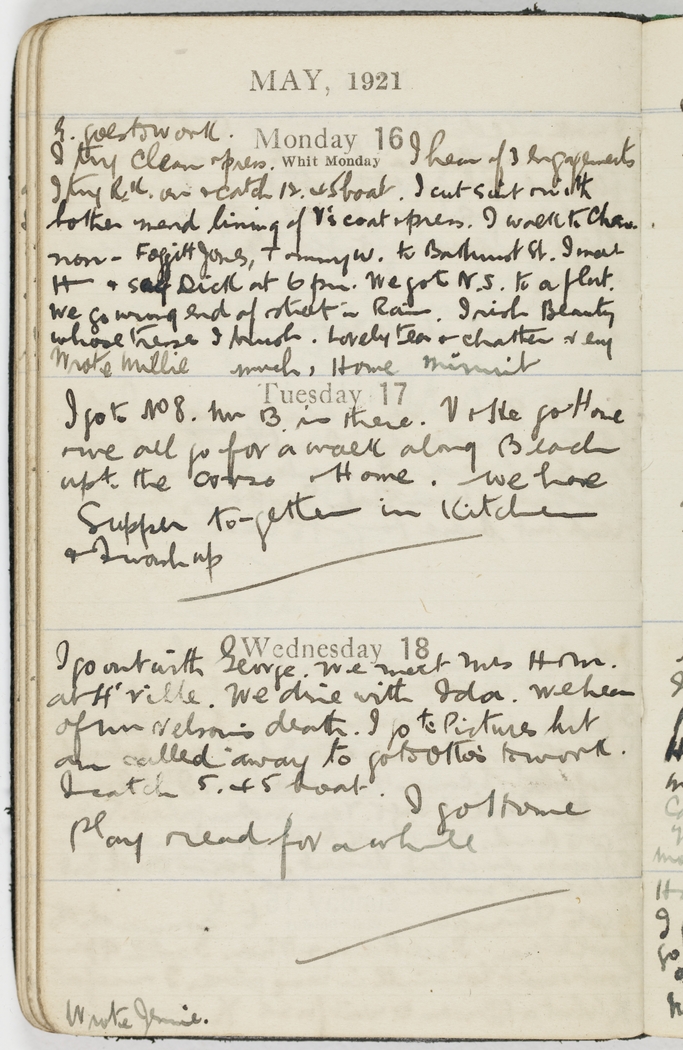 MAY, 1921
G. goes to work.
Monday 16
I try clean & press. Whit Monday I hear of 3 engagements
I try on & catch 12.45 boat. I cut suit out &
bother mend lining of V's coat & press. I walk to
Jones, Tommy W. to Bathurst St. I meet
H & Dick at 6 pm. We go to N.S. to a flat.
We go wrong end of street in Rain. Irish Beauty
whose I brush. Lovely tea & chatter very
Wrote Millie much, Home
Tuesday 17
I go to No 8. Mr B. is there. V & He go Home
& we all go for a walk along Beach
up to the Corso & Home. We have
Supper to-gether in Kitchen
& I wash up
Wednesday 18
I go out with George. We meet Mrs Horn.
at H'ville. We dine with Ida. We hear
of Mr Nelson's death. I go to Pictures but
am called away to go to Otto's to work.
I catch 5.45 boat.
I go Home
Play & read for a while
Wrote Jennie.